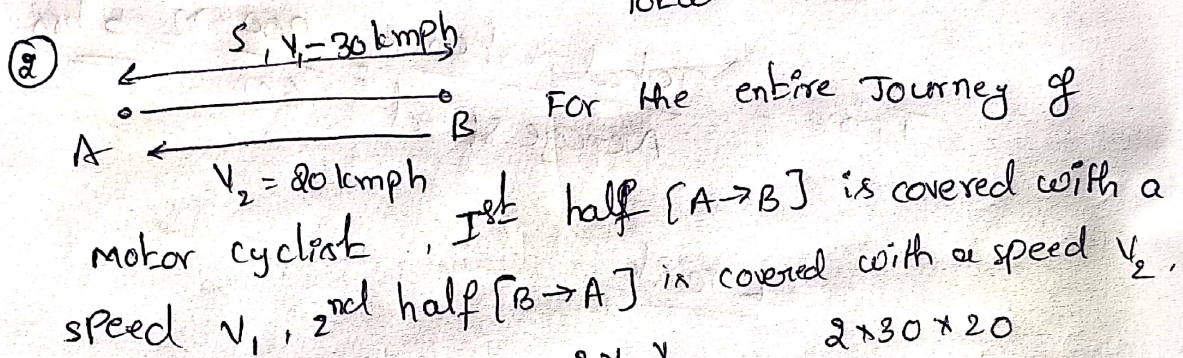 ② S, V₁ = 30 kmph
A B For the entire Journey of
V₂ = 20 kmph
Motor cyclist, Ist half [A→B] is covered with a
speed V₁, 2nd half [B→A] is covered with a speed V₂.
2×30×20